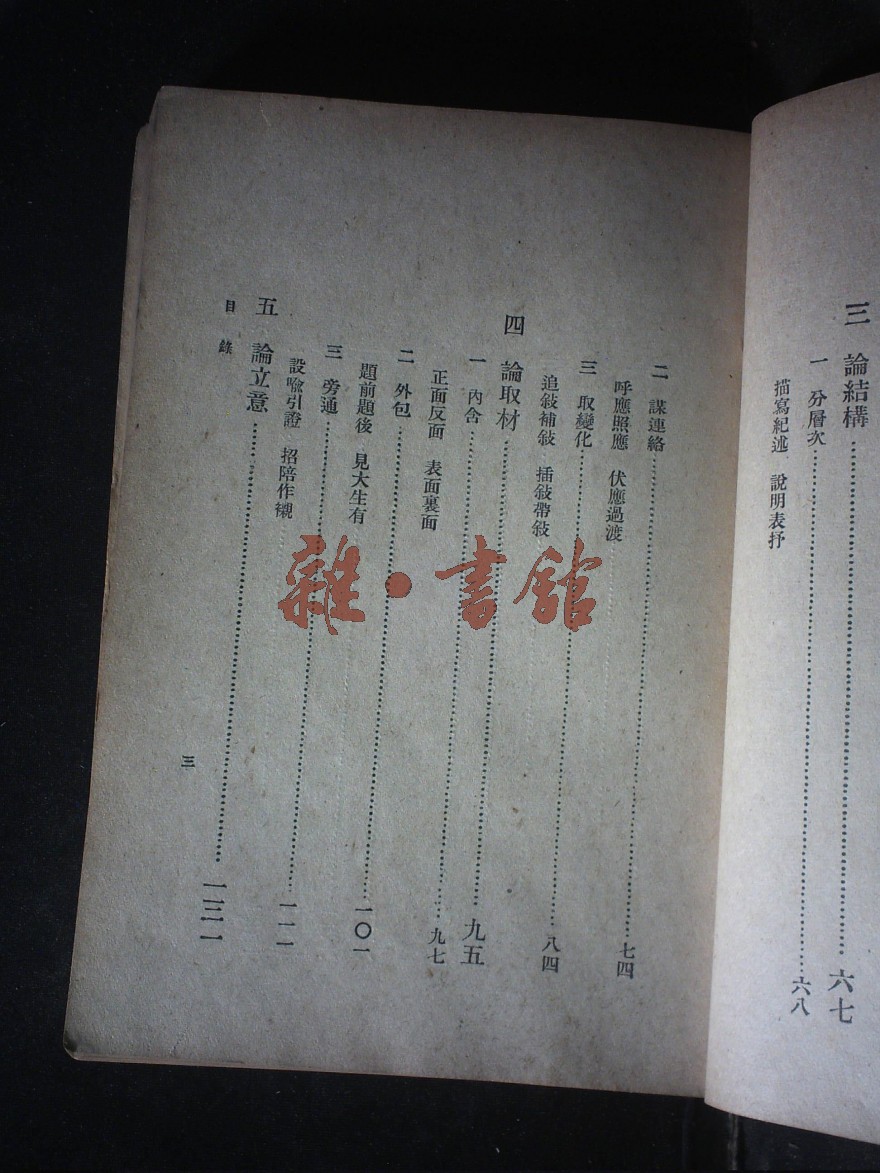 三 論結構……六七
一 分層次……六八
描寫紀述 說明表抒
二 謀連絡……七四
呼應照應 伏應過渡
三 取變化……八四
追敍補敍 插敍帶敍
四 論取材……九五
一 內含……九七
正面反面 表面裏面
二 外包……一〇一
題前題後 見大生有
三 旁通……一一一
設喩引證 招陪作襯
五 論立意……一二一
目錄
三
雜·書館